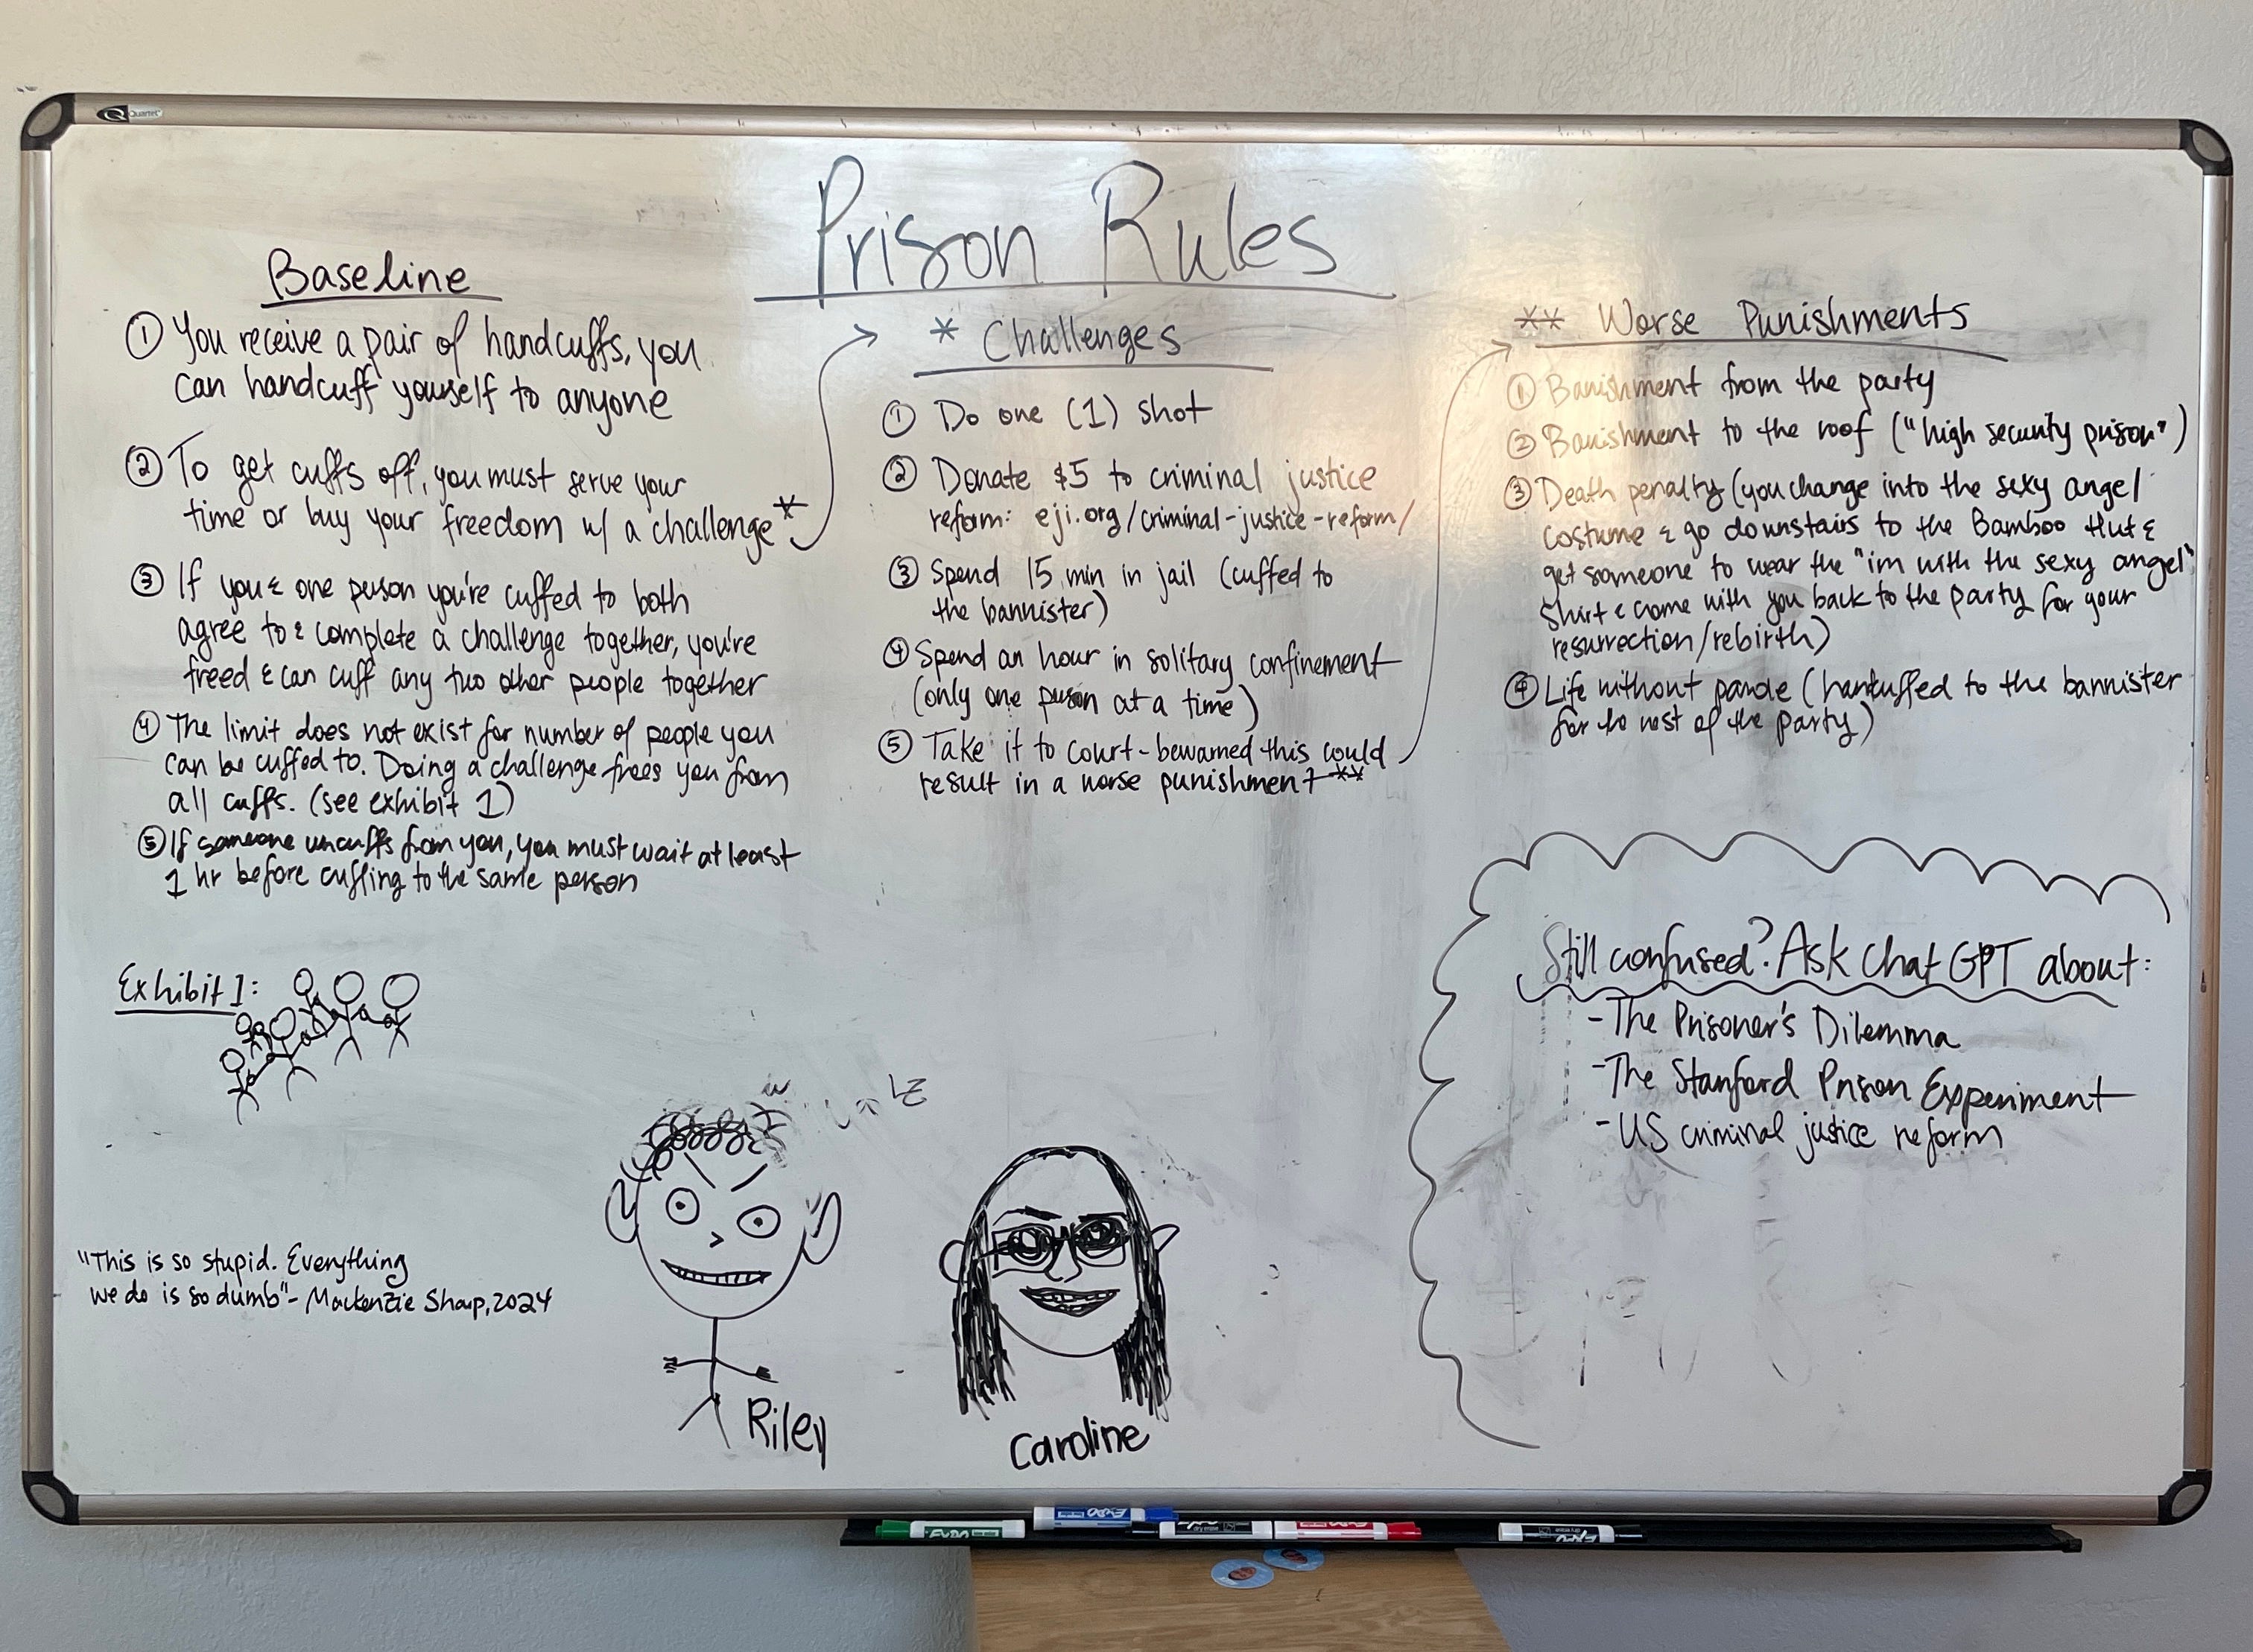 Quartet
Prison Rules
Baseline
① You receive a pair of handcuffs, you
can handcuff yourself to anyone
② To get cuffs off, you must serve your
time or buy your freedom w/ a challenge*
③ If you & one person you're cuffed to both
agree to & complete a challenge together, you're
freed & can cuff any two other people together
④ The limit does not exist for number of people you
can be cuffed to. Doing a challenge frees you from
all cuffs. (see exhibit 1)
⑤ If someone uncuffs from you, you must wait at least
1 hr before cuffing to the same person
Exhibit 1:
"This is so stupid. Everything
we do is so dumb" - Mackenzie Sharp, 2024
* Challenges
① Do one (1) shot
② Donate $5 to criminal justice
reform: eji.org/criminal-justice-reform/
③ Spend 15 min in jail (cuffed to
the bannister)
④ Spend an hour in solitary confinement
(only one person at a time)
⑤ Take it to court - bewarned this could
result in a worse punishment **
Riley
Caroline
** Worse Punishments
① Banishment from the party
② Banishment to the roof ("high security prison")
③ Death penalty (you change into the sexy angel
costume & go downstairs to the Bamboo Hut &
get someone to wear the "im with the sexy angel"
shirt & come with you back to the party for your
resurrection/rebirth)
④ Life without parole (handcuffed to the bannister
for the rest of the party)
Still confused? Ask Chat GPT about:
- The Prisoner's Dilemma
- The Stanford Prison Experiment
- US criminal justice reform
EXPO
EXPO
EXPO
EXPO